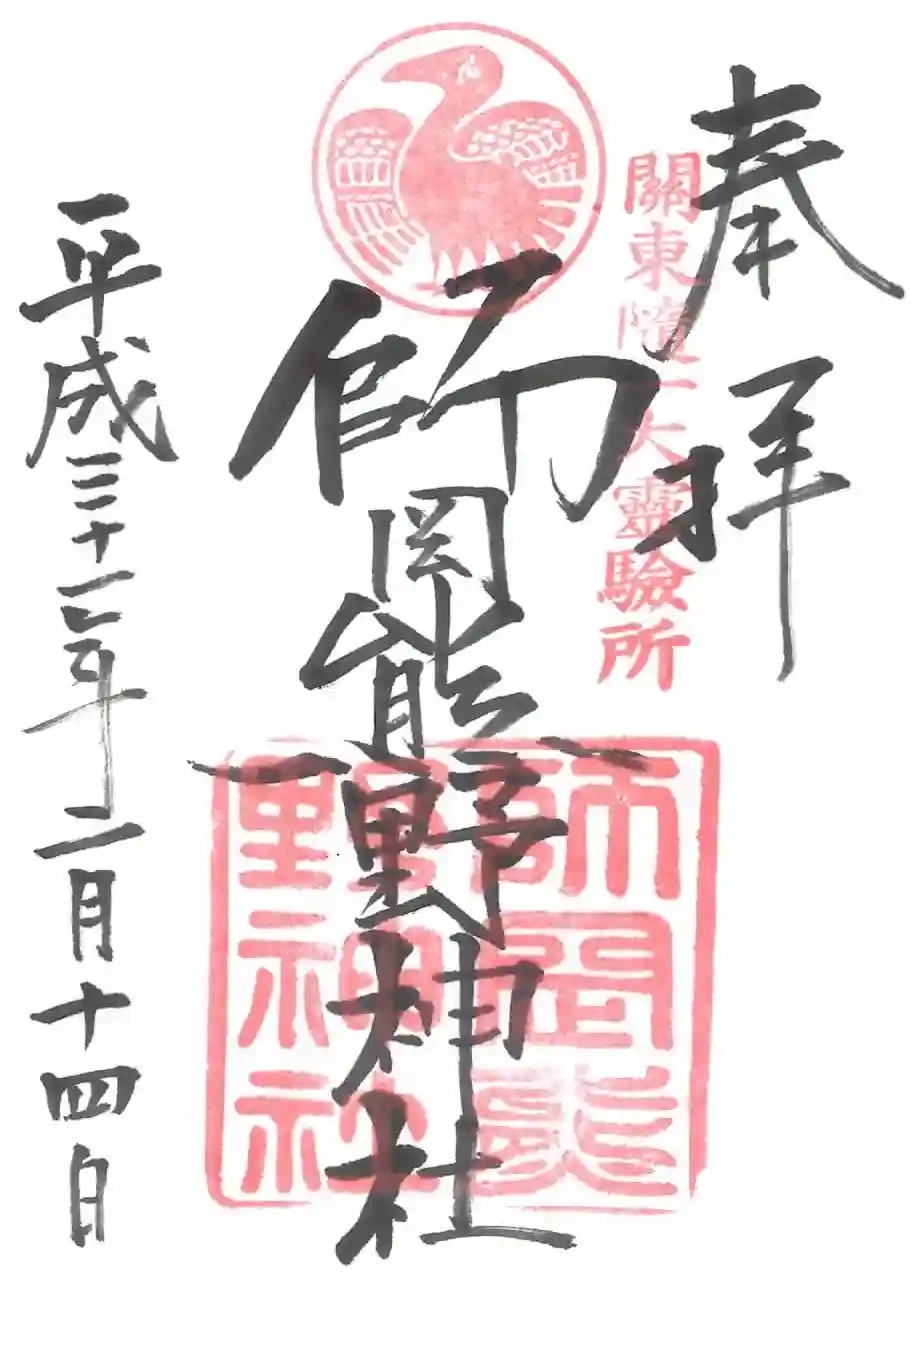 奉拝
關東隨一大靈驗所
師岡熊野神社
師岡熊野神社
平成三十一年二月十四日